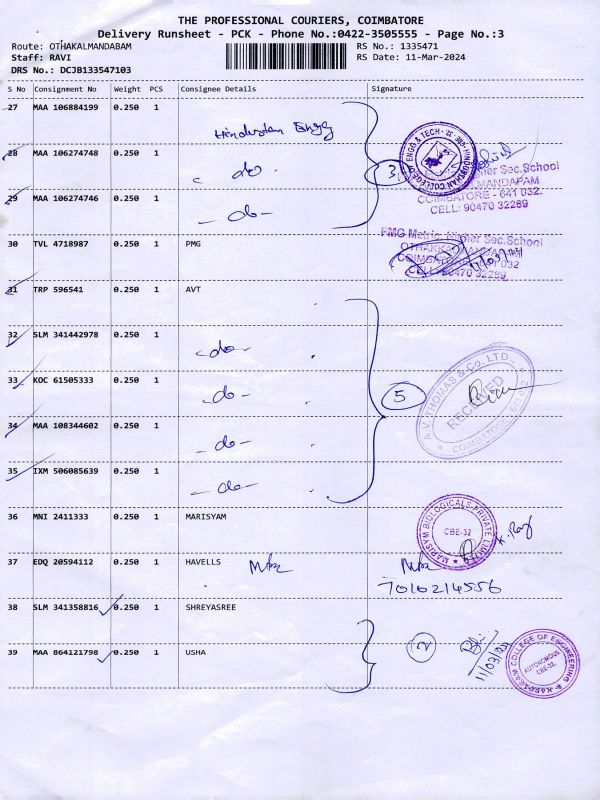 THE PROFESSIONAL COURIERS, COIMBATORE
Delivery Runsheet - PCK - Phone No.:0422-3505555 - Page No.:3
Route: OTHAKALMANDABAM RS No.: 1335471
Staff: RAVI RS Date: 11-Mar-2024
DRS No.: DCJB133547103
S No Consignment No Weight PCS Consignee Details Signature
27 MAA 106884199 0.250 1
Hindustan Engg
HINDUSTHAN COLLEGE OF ENGG & TECH
28 MAA 106274748 0.250 1 do 3
Sec.School
COIMBATORE - 641 032.
CELL: 90470 32289
29 MAA 106274746 0.250 1 - do -
PMG Matric. Higher Sec.School
30 TVL 4718987 0.250 1 PMG
31 TRP 596541 0.250 1 AVT
32 SLM 341442978 0.250 1 - do -
33 KOC 61505333 0.250 1 - do - 5
A.V. THOMAS & Co. LTD.,
RECEIVED
34 MAA 108344602 0.250 1 - do -
35 IXM 506085639 0.250 1 - do -
36 MNI 2411333 0.250 1 MARISYAM
MARISYM BIOLOGICALS PRIVATE LIMITED
CBE-32
37 EDQ 20594112 0.250 1 HAVELLS
7010214556
38 SLM 341358816 0.250 1 SHREYASREE
39 MAA 864121798 0.250 1 USHA 2
11/03/24
KARPAGAM COLLEGE OF ENGINEERING
AUTONOMOUS
CBE-32.